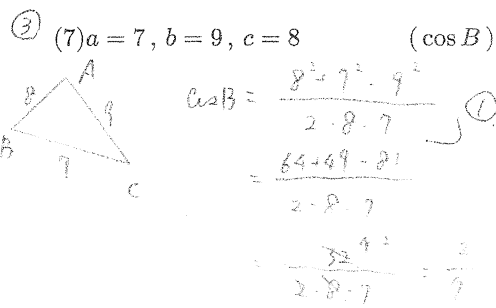 ③ (7) a = 7, b = 9, c = 8 (cos B)
A
8 9
B
7
C
cos B = (8² + 7² - 9²) / (2・8・7) ①
= (64 + 49 - 81) / (2・8・7)
= 32 / (2・8・7) = 2